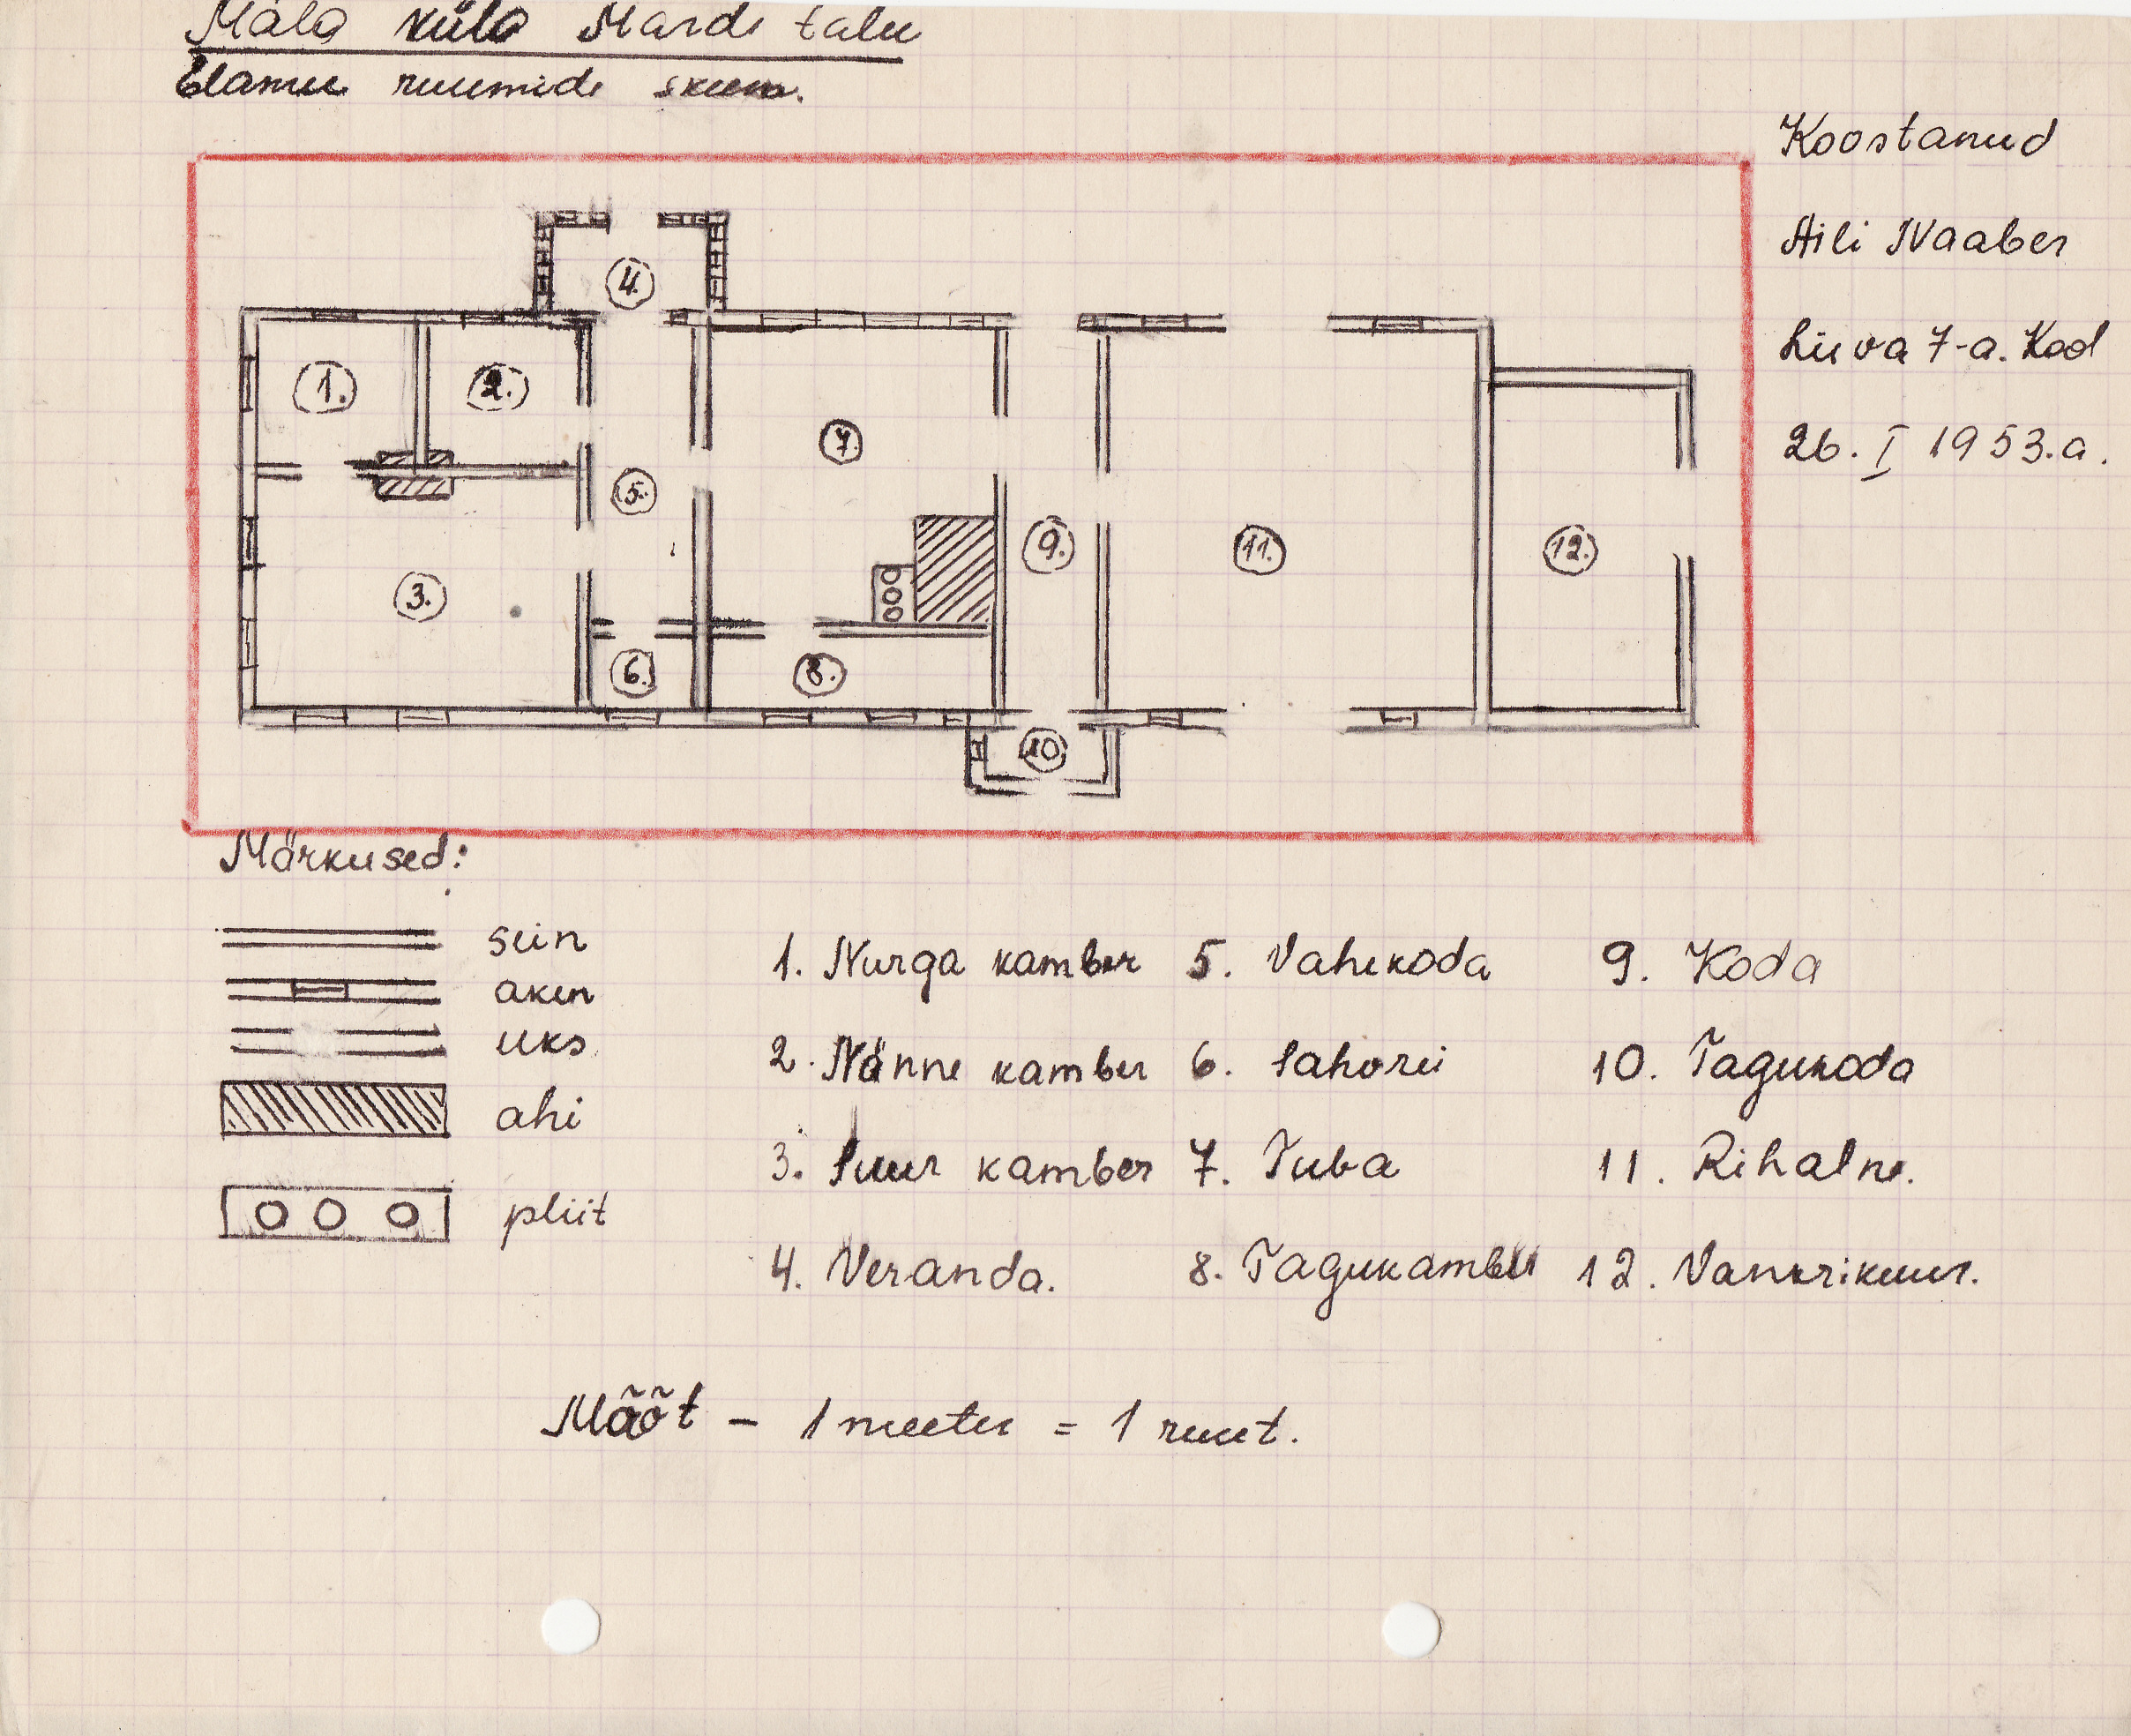 Mäla küla Mardi talu
Elamu ruumide skeem.
Koostanud
Aili Naaber
Liiva 7-a. Kool
26. I 1953.a.
1.
2.
3.
4.
5.
6.
7.
8.
9.
10.
11.
12.
Märkused:
sein
aken
uks
ahi
pliit
1. Nurga kamber
2. Nänne kamber
3. Suur kamber
4. Veranda.
5. Vahekoda
6. Sahvrei
7. Tuba
8. Tagukamber
9. Koda
10. Tagukoda
11. Rihalne.
12. Vankrikuur.
Mõõt - 1 meeter = 1 ruut.